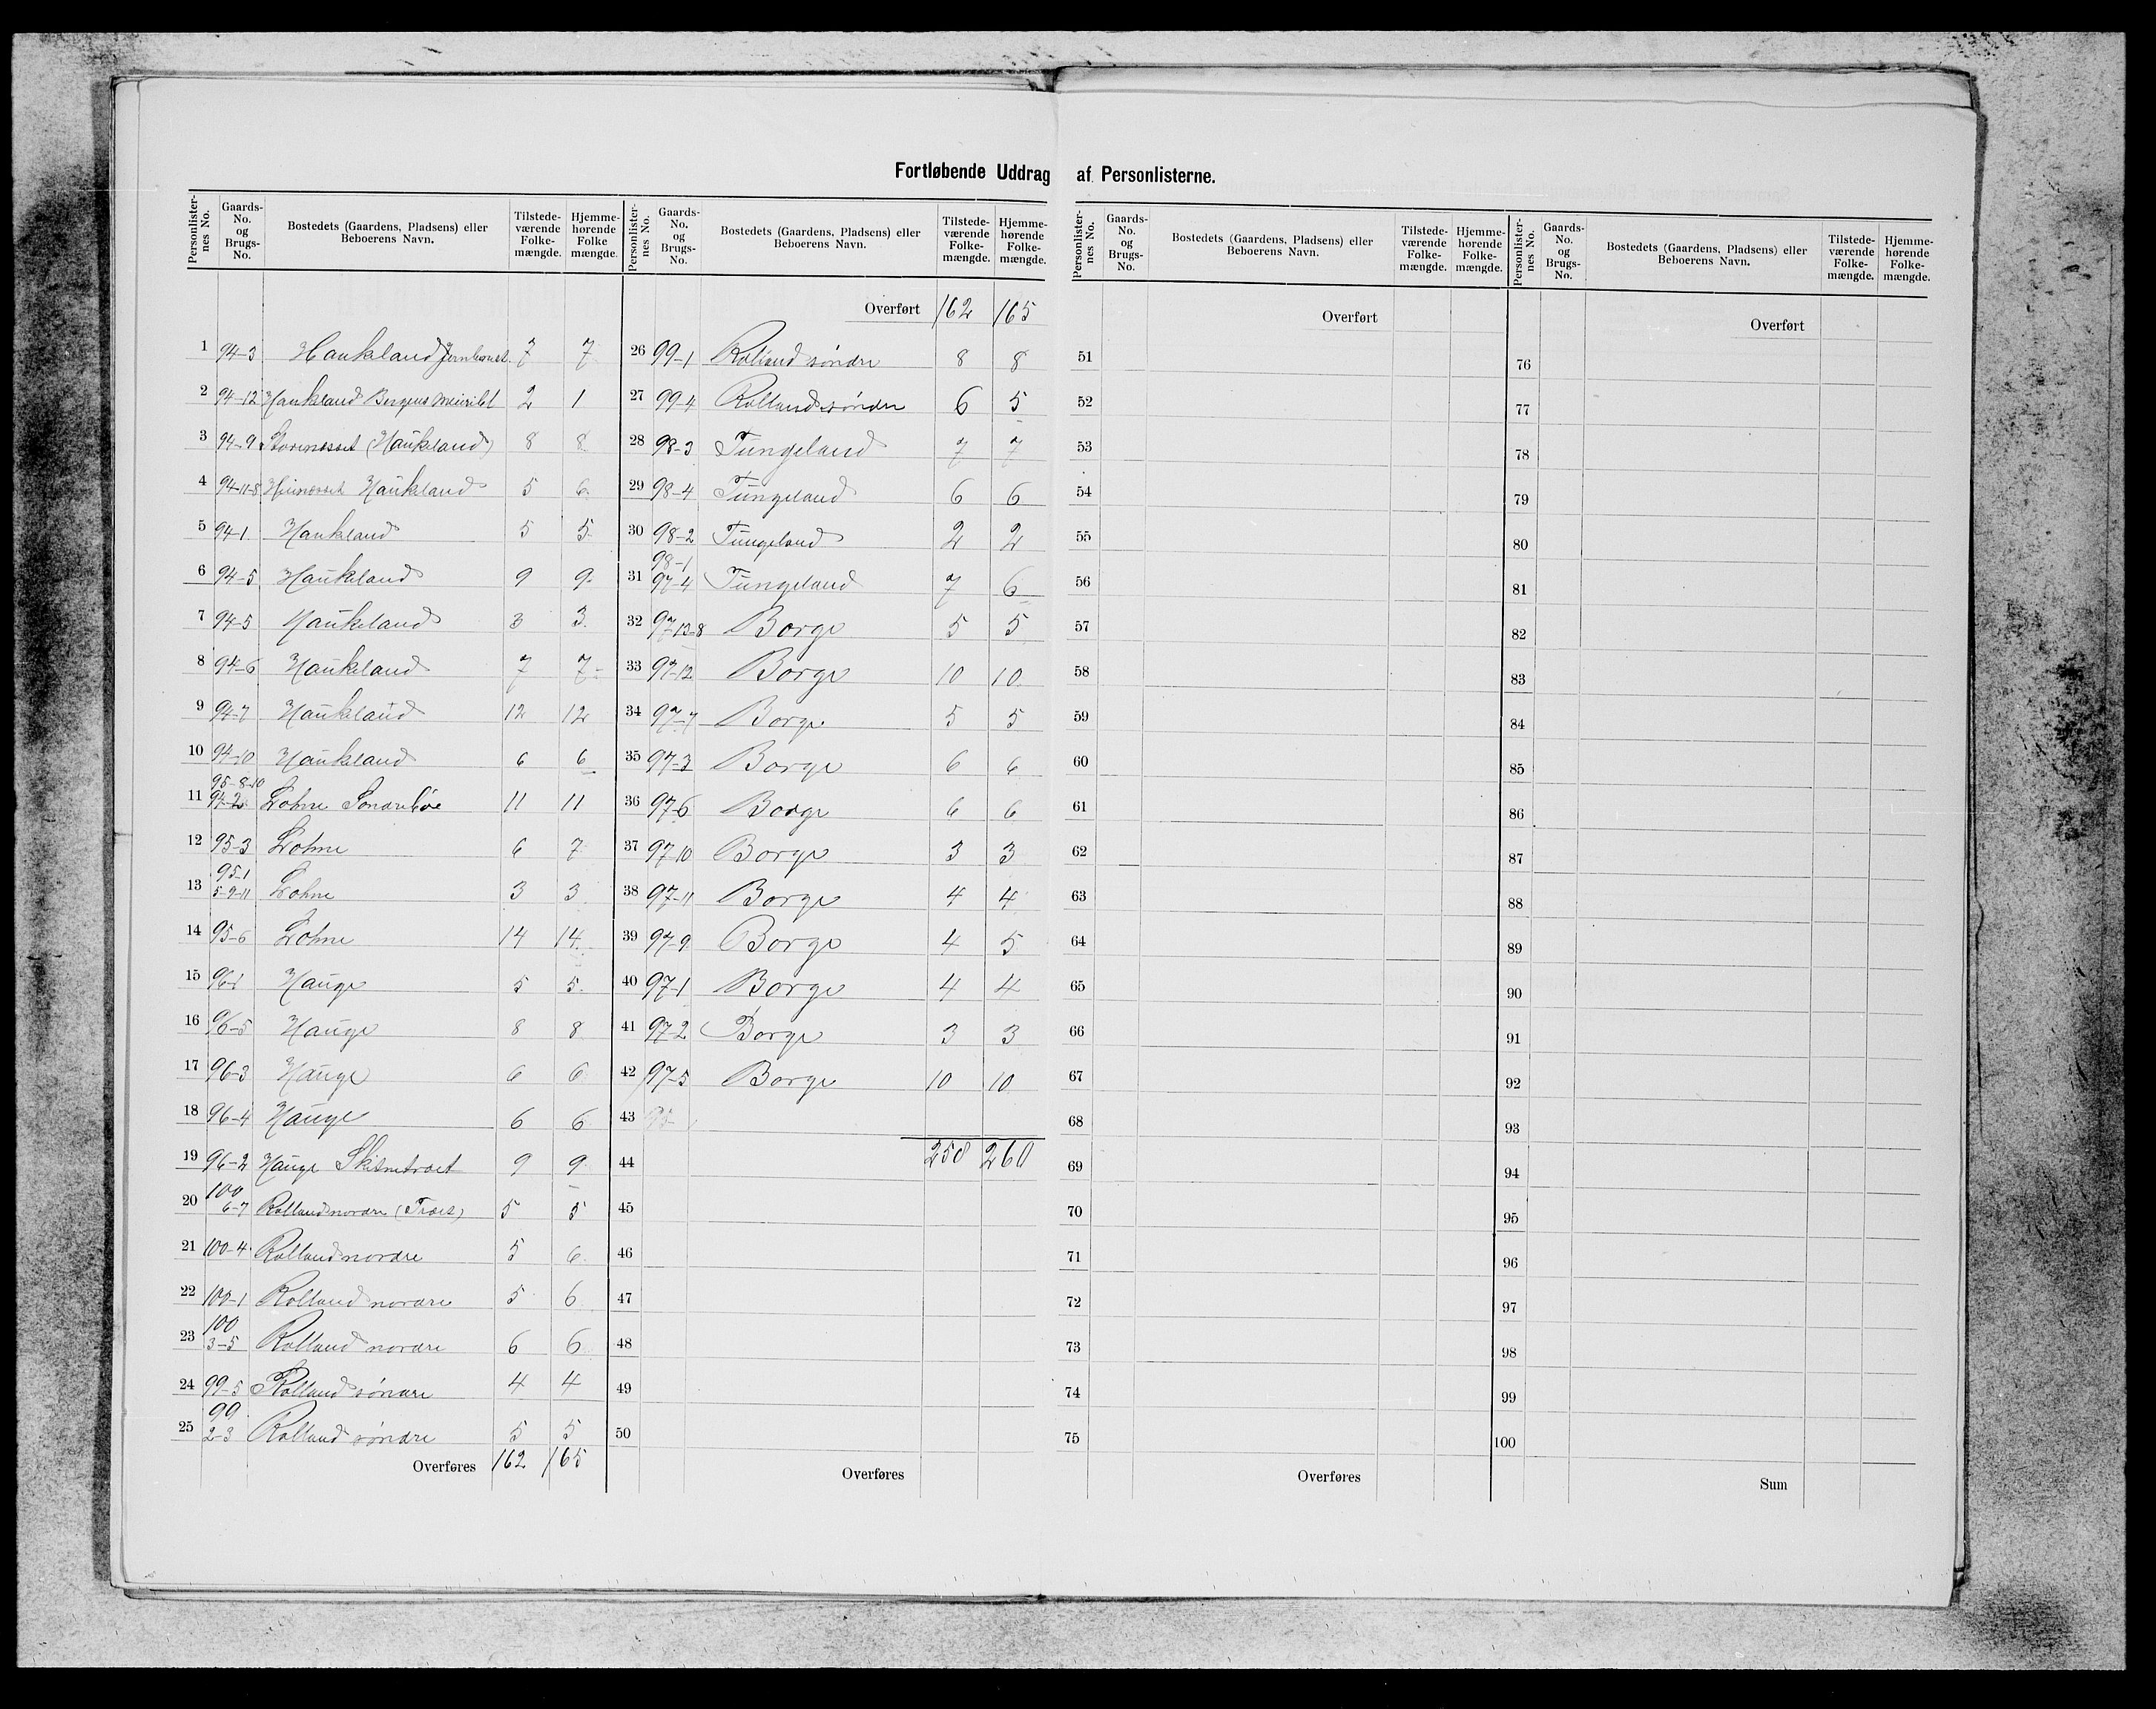 Fortløbende Uddrag af Personlisterne.
Personlisternes No. Gaards-No. og Brugs-No. Bostedets (Gaardens, Pladsens) eller Beboerens Navn. Tilstedeværende Folkemængde. Hjemmehørende Folkemængde.
1 94-3 Haukland 7 7
2 94-12 Haukland Bergens 2 1
3 94-9 (Haukeland) 8 8
4 94-11-8 Haukeland 5 6
5 94-1 Haukland 5 5
6 94-5 Haukeland 9 9
7 94-5 Haukeland 3 3
8 94-6 Haukeland 7 7
9 94-7 Haukeland 12 12
10 94-10 Haukeland 6 6
95-8-10
11 94-2 Lohne 11 11
12 95-3 Lohne 6 7
95-1
13 5-9-11 Lohne 3 3
14 95-6 Lohne 14 14
15 96-1 Hauge 5 5
16 96-5 Hauge 8 8
17 96-3 Hauge 6 6
18 96-4 Hauge 6 6
19 96-2 Hauge 9 9
100
20 6-7 Rolland nordre 5 5
21 100-4 Rolland nordre 5 6
22 100-1 Rolland nordre 5 6
100
23 3-5 Rolland nordre 6 6
24 99-5 Rolland søndre 4 4
99
25 2-3 Rolland søndre 5 5
Overføres 162 165
Personlisternes No. Gaards-No. og Brugs-No. Bostedets (Gaardens, Pladsens) eller Beboerens Navn. Tilstedeværende Folkemængde. Hjemmehørende Folkemængde.
Overført 162 165
26 99-1 Rolland søndre 8 8
27 99-4 Rolland søndre 6 5
28 98-3 Tungeland 7 7
29 98-4 Tungeland 6 6
30 98-2 Tungeland 2 2
98-1
31 97-4 Tungeland 7 6
32 97-13-8 Borge 5 5
33 97-12 Borge 10 10
34 97-7 Borge 5 5
35 97-3 Borge 6 6
36 97-6 Borge 6 6
37 97-10 Borge 3 3
38 97-11 Borge 4 4
39 97-9 Borge 4 5
40 97-1 Borge 4 4
41 97-2 Borge 3 3
42 97-5 Borge 10 10
43
44 258 260
45
46
47
48
49
50
Overføres
Personlisternes No. Gaards-No. og Brugs-No. Bostedets (Gaardens, Pladsens) eller Beboerens Navn. Tilstedeværende Folkemængde. Hjemmehørende Folkemængde.
Overført
51
52
53
54
55
56
57
58
59
60
61
62
63
64
65
66
67
68
69
70
71
72
73
74
75
Overføres
Personlisternes No. Gaards-No. og Brugs-No. Bostedets (Gaardens, Pladsens) eller Beboerens Navn. Tilstedeværende Folkemængde. Hjemmehørende Folkemængde.
Overført
76
77
78
79
80
81
82
83
84
85
86
87
88
89
90
91
92
93
94
95
96
97
98
99
100
Sum